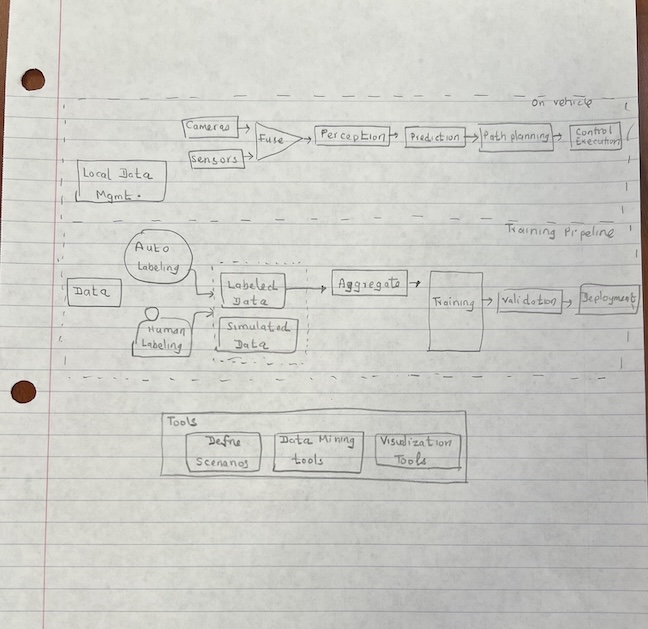 On vehicle
Cameras
Sensors
Fuse
Perception
Prediction
Path planning
Control
Execution
Local Data
Mgmt.
Training Pipeline
Auto
Labeling
Data
Human
Labeling
Labeled
Data
Simulated
Data
Aggregate
Training
Validation
Deployment
Tools
Define
Scenarios
Data Mining
tools
Visualization
Tools